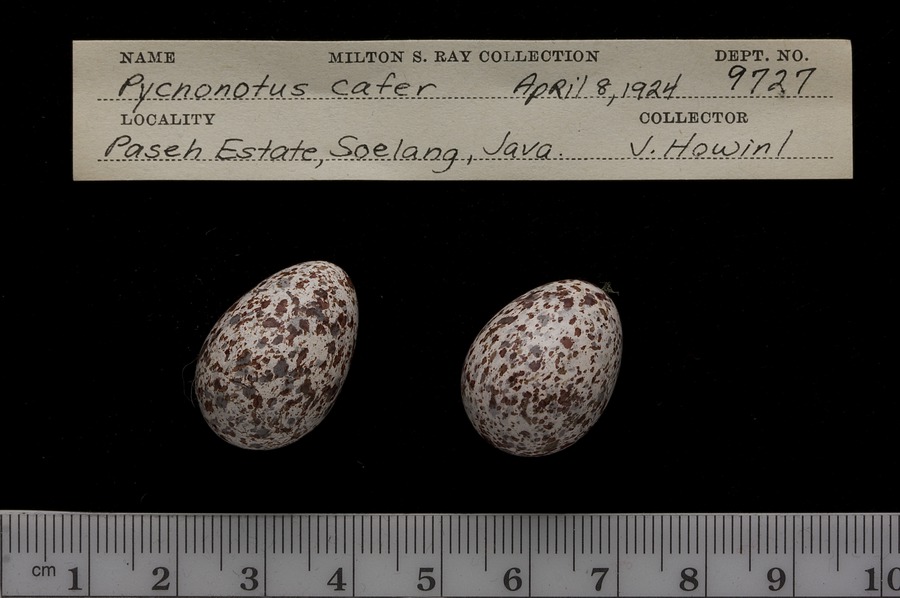 NAME MILTON S. RAY COLLECTION DEPT. NO.
Pycnonotus cafer April 8, 1924 9727
LOCALITY COLLECTOR
Paseh Estate, Soelang, Java. V. Howinl
cm 1 2 3 4 5 6 7 8 9 10